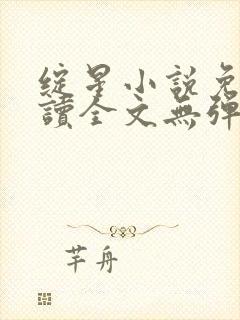 綻星小說免
讀全文無彈
芊舟